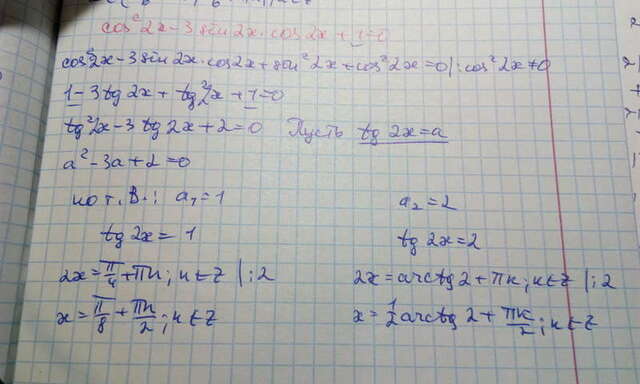 cos²2x - 3 sin 2x · cos 2x + 1 = 0
cos²2x - 3 sin 2x · cos 2x + sin²2x + cos²2x = 0 | : cos²2x ≠ 0
1 - 3 tg 2x + tg²2x + 1 = 0
tg²2x - 3 tg 2x + 2 = 0 Пусть tg 2x = a
a² - 3a + 2 = 0
по т. В.: a₁ = 1 a₂ = 2
tg 2x = 1 tg 2x = 2
2x = π/4 + πn; n ∈ Z | : 2 2x = arctg 2 + πк; к ∈ Z | : 2
x = π/8 + πn/2; n ∈ Z x = 1/2 arctg 2 + πк/2; к ∈ Z